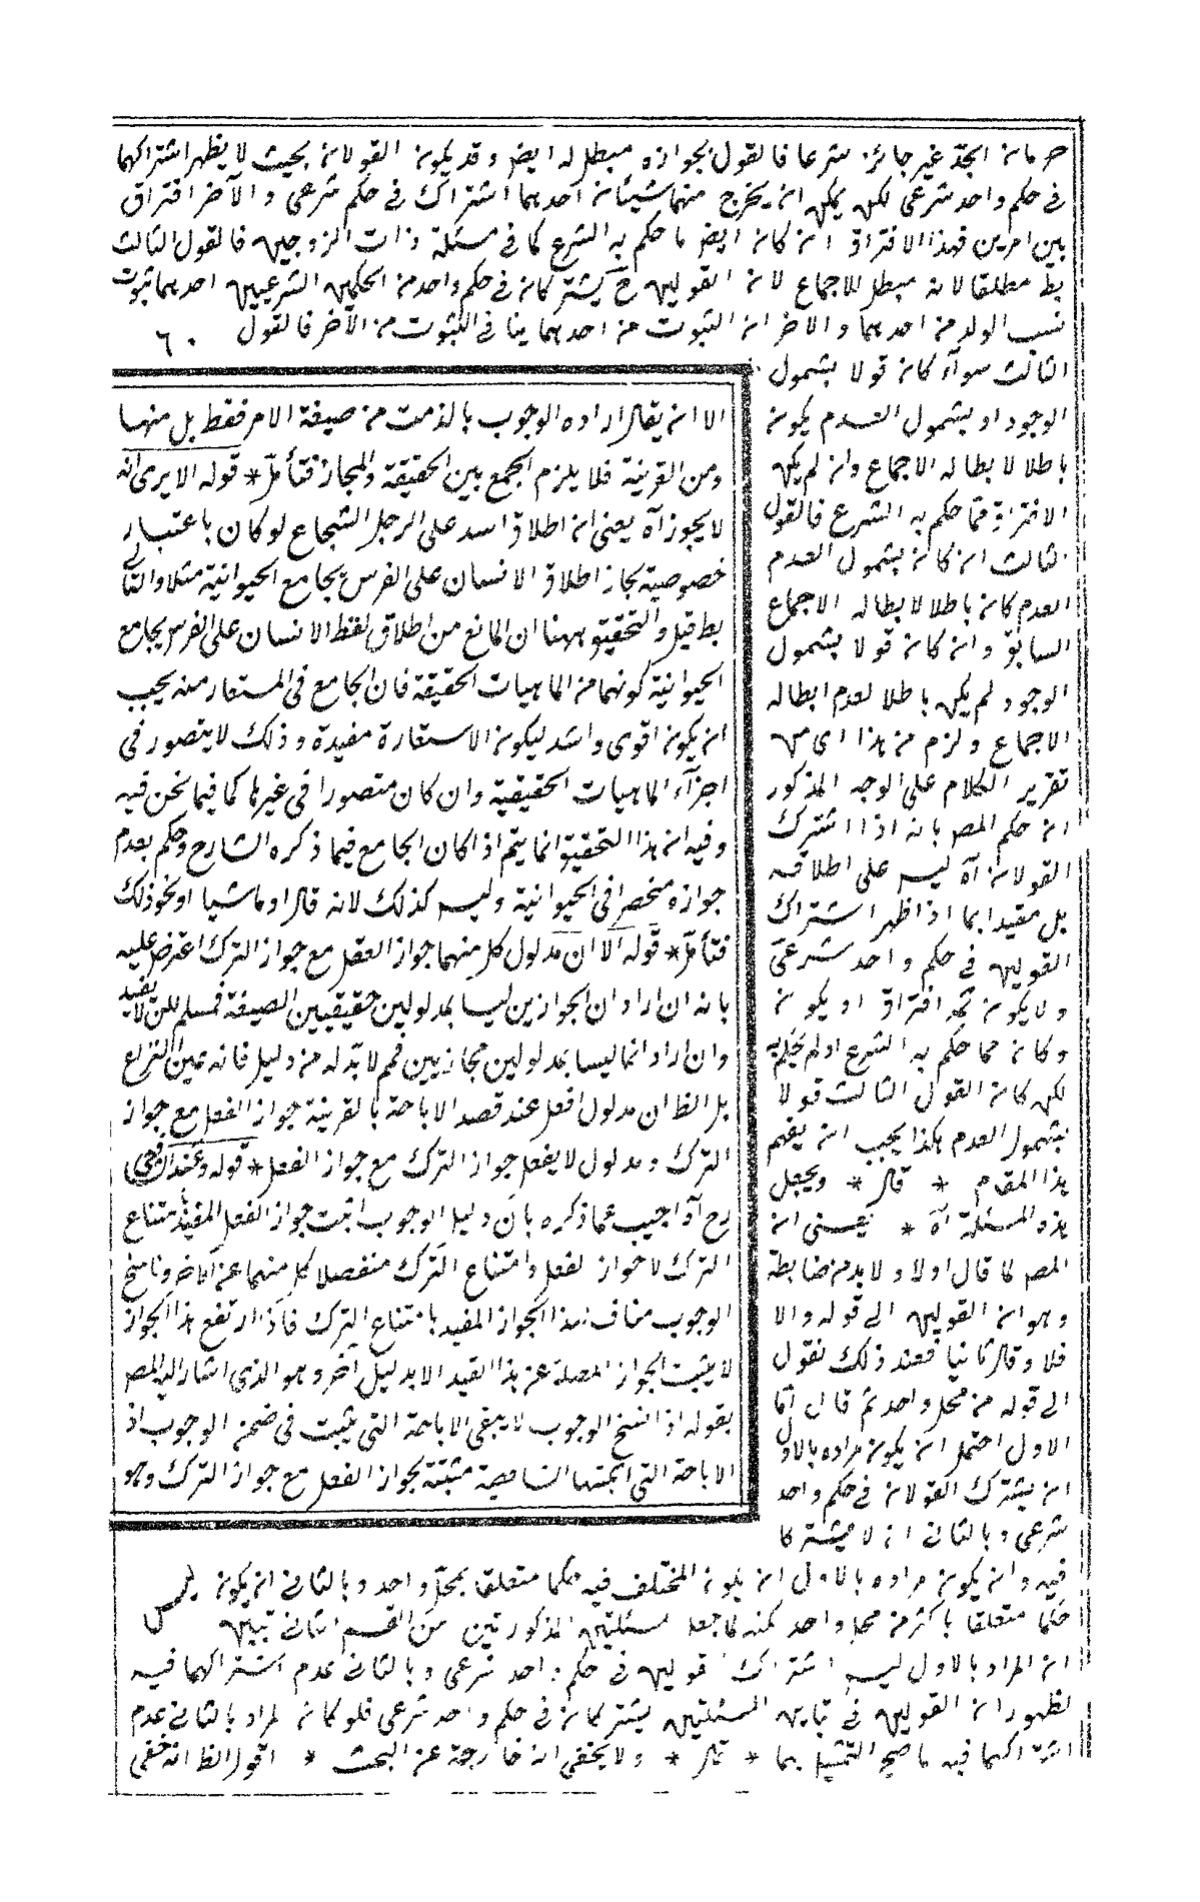 حرمان الجد غير جائز شرعا فالقول بجوازه مبطل له ايض وقد يكون القولان بحيث لا يظهر اشتراكهما
فى حكم واحد شرعى لكن يمكن ان يخرج منهما شيئان احدهما اشتراك فى حكم شرعى والآخر افتراق
بين امرين فهذا الافتراق ان كان ايض ما حكم به الشرع كما فى مسئلة ذات الزوجين فالقول الثالث
بط مطلقا لانه مبطل للاجماع لان القولين ح يشتركان فى حكم واحد من الحكمين الشرعيين احدهما ثبوت
نسب الولد من احدهما والاخر ان الثبوت من احدهما ينا فى الثبوت من الآخر فالقول ٦٠
الثالث سوآء كان قولا بشمول
الوجود او بشمول العدم يكون
باطلا لابطاله الاجماع وان لم يكن
الافتراق مما حكم به الشرع فالقول
الثالث ان كان بشمول العدم
العدم كان باطلا لابطاله الاجماع
السابق وان كان قولا بشمول
الوجود لم يكن باطلا لعدم ابطاله
الاجماع ولزم من هذا اى من
تقرير الكلام على الوجه المذكور
ان حكم المص بانه اذا اشترك
القولان آه ليس على اطلاقه
بل مقيد ا بما اذا ظهر اشتراك
القولين فى حكم واحد شرعى
ولا يكون ثمه افتراق او يكون
وكان مما حكم به الشرع او لم يحكم به
لكن كان القول الثالث قولا
بشمول العدم هكذا يجب ان يفهم
هذا المقام * قال * ويجعل
هذه المسئلة آه * يعنى ان
المص لما قال اولا ولا بد من ضابطة
وهو ان القولين الى قوله والا
فلا وقال ثانيا فعند ذلك نقول
الى قوله من محل واحد ثم قال اما
الاول احتمل ان يكون مراده بالاول
ان يشترك القولان فى حكم واحد
شرعى وبالثانى ان لا يشتركا
فيه وان يكون مراده بالاول ان يكون المختلف فيه حكما متعلقا بمحل واحد وبالثانى ان يكون
حكما متعلقا باكثر من محل واحد لكنه لما جعل مسئلتين المذكورتين من القسم الثانى تبين
ان المراد بالاول ليس اشتراك القولين فى حكم واحد شرعى وبالثانى عدم اشتراكهما فيه
لظهور ان القولين فى تابين المسئلتين يشتركان فى حكم واحد شرعى فلو كان المراد بالثانى عدم
اشتراكهما فيه ما صح التمثيل بهما * قال * ولا يخفى انه خارجة عن البحث * اقول الظ انه خفى
الا ان يقال اراده الوجوب بالذمت من صيغة الامر فقط بل منها
ومن القرينة فلا يلزم الجمع بين الحقيقة والمجاز فتأمل * قوله الا يرى انه
لا يجوز آه يعنى ان اطلاق اسد على الرجل الشجاع لو كان باعتبار
خصوصية بجاز اطلاق الانسان على الفرس بجامع الحيوانية مثلا والتالى
بط قيل والتحقيق ههنا ان المانع من اطلاق لفظ الانسان على الفرس بجامع
الحيوانية كونهما من الماهيات الحقيقة فان الجامع فى المستعار منه يجب
ان يكون اقوى واشد ليكون الاستعارة مفيدة وذلك لا يتصور فى
اجزآء الماهيات الحقيقية وان كان متصورا فى غيرها كما فيما نحن فيه
وفيه ان هذا التحقيق انما يتم اذا كان الجامع فيما ذكره الشارح وحكم بعدم
جوازه منحصرا فى الحيوانية وليس كذلك لانه قال او ماشيا او نحو ذلك
فتأمل * قوله الا ان مدلول كل منهما جواز العقل مع جواز الترك اعترض عليه
بانه ان اراد ان الجوازين ليسا بمدلولين حقيقيين الصيغة فمسلم لكن لا يفيد
وان اراد انما ليسا بمدلولين مجازيين فمم لا بد له من دليل فانه عين النزاع
بل الظ ان مدلول افعل عند قصد الاباحة بالقرينة جواز الفعل مع جواز
الترك ومدلول لا يفعل جواز الترك مع جواز الفعل * قوله وعند الشافعى
رح آه اجيب عما ذكره بان دليل الوجوب اثبت جواز الفعل المقيد بامتناع
الترك لا جواز الفعل وامتناع الترك منفصلا كل منهما عن الآخر وناسخ
الوجوب مناف لهذا الجواز المقيد بامتناع الترك فاذا ارتفع هذا الجواز
لا يثبت الجواز المصلة عن هذا القيد الا بدليل آخر وهو الذى اشار اليه المص
بقوله اذا النسخ الوجوب لا يبقى الاباحة التى يثبت فى ضمن الوجوب اذ
الاباحة التى اثبتها الشافعية مثبتة بجواز الفعل مع جواز الترك وهو